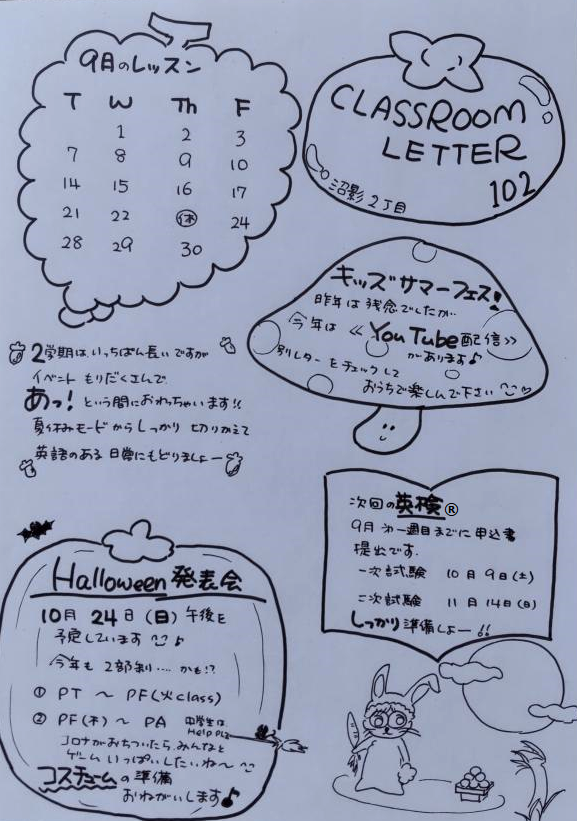 9月のレッスン
T W Th F
1 2 3
7 8 9 10
14 15 16 17
21 22 休 24
28 29 30
CLASSROOM
LETTER
102
沼影2丁目
キッズサマーフェス!
昨年は残念でしたが
今年は《YouTube配信》
があります♪
別レターをチェックして
おうちで楽しんで下さい
2学期は、いっちばん長いですが
イベントもりだくさんで
あっ!という間におわっちゃいます!!
夏休みモードからしっかり切りかえて
英語のある日常にもどりましょー
次回の英検®
9月第一週目までに申込書
提出です.
一次試験 10月9日(土)
二次試験 11月14日(日)
しっかり準備しよー!!
Halloween発表会
10月24日(日)午後を
予定しています♪
今年も2部制....かも!?
① PT ~ PF(火class)
② PF(木)~ PA 中学生は
Help plz
コロナがおちついたら、みんなと
ゲームいっぱいしたいね~
コスチュームの準備
おねがいします♪